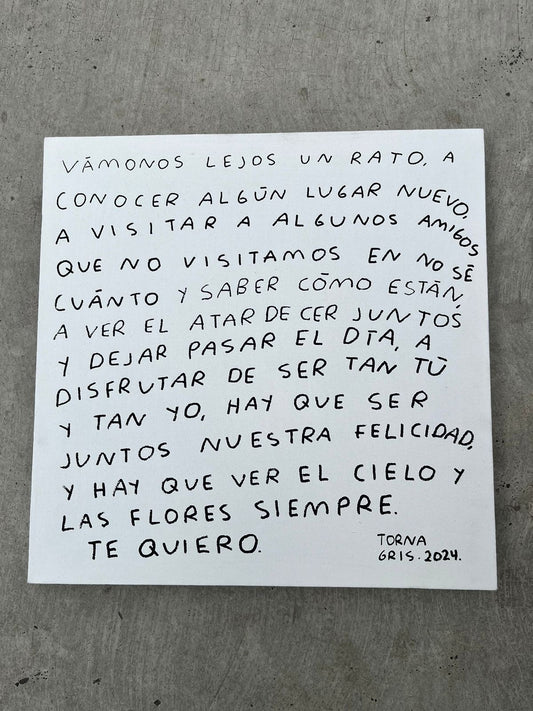 VÁMONOS LEJOS UN RATO, A
CONOCER ALGÚN LUGAR NUEVO,
A VISITAR A ALGUNOS AMIGOS
QUE NO VISITAMOS EN NO SÉ
CUÁNTO Y SABER CÓMO ESTÁN,
A VER EL ATAR DE CER JUNTOS
Y DEJAR PASAR EL DÍA, A
DISFRUTAR DE SER TAN TÚ
Y TAN YO, HAY QUE SER
JUNTOS NUESTRA FELICIDAD,
Y HAY QUE VER EL CIELO Y
LAS FLORES SIEMPRE.
TE QUIERO.
TORNA
GRIS. 2024.